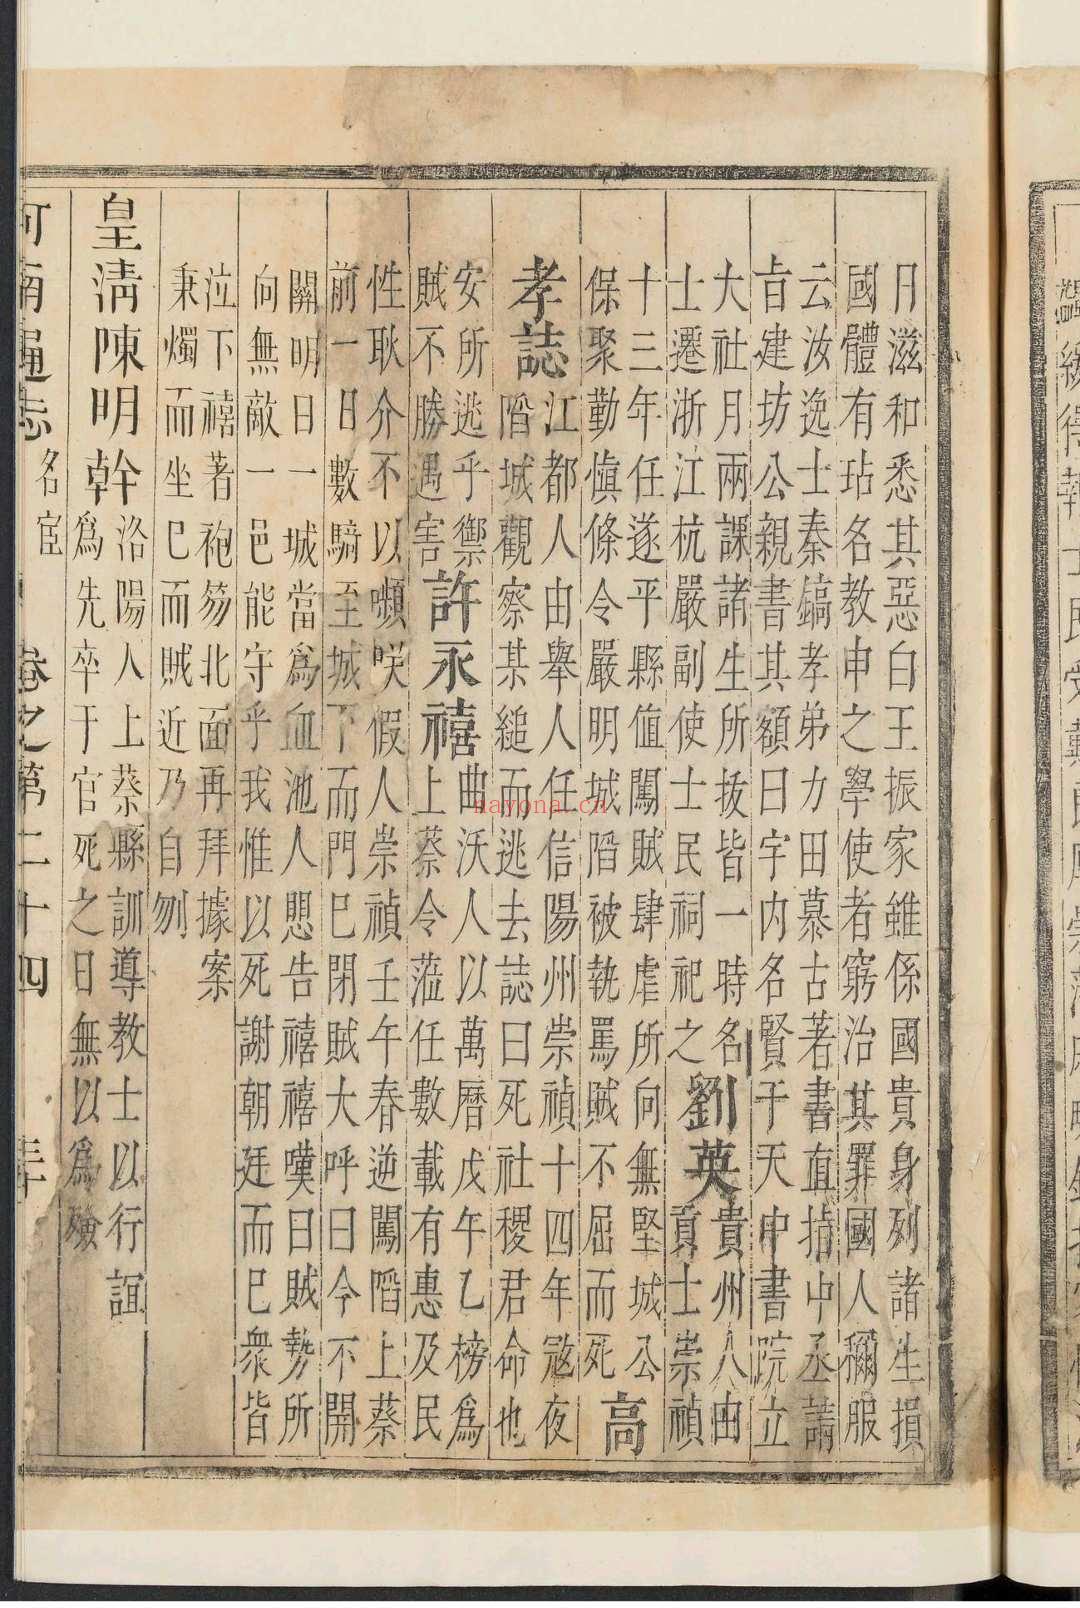 日滋和悉其惡白王振家雖係國貴身列諸生損
國體有玷名教申之學使者窮治其罪國人穪服
云汝逸士秦鎬孝弟力田慕古著書直指中丞請
㫖建坊公親書其額曰宇內名賢于天中書院立
大社月兩課諸生所拔皆一時名劉英貴州人由
士遷浙江杭嚴副使士民祠祀之貢士崇禎
十三年任遂平縣值闖賊肆虐所向無堅城公
保聚勤慎條令嚴明城䧟被執罵賊不屈而死高
孝誌江都人由舉人任信陽州崇禎十四年寇夜
䧟城觀察某縋而逃去誌曰死社稷君命也
安所逃乎禦許永禧曲沃人以萬曆戊午乙榜為
賊不勝遇害上蔡令蒞任數載有惠及民
性耿介不以嚬咲假人崇禎壬午春逆闖䧟上蔡
前一日數騎至城下而門巳閉賊大呼曰今不開
關明日一城當為血池人恖告禧禧嘆曰賊勢所
向無敵一邑能守乎我惟以死謝朝廷而巳衆皆
泣下禧著袍笏北面再拜據案
秉燭而坐巳而賊近乃自刎
皇清陳明幹洛陽人上蔡縣訓導教士以行誼
為先卒于官死之日無以為殮
河南通志 名宦 卷之第二十四
nayona.cn